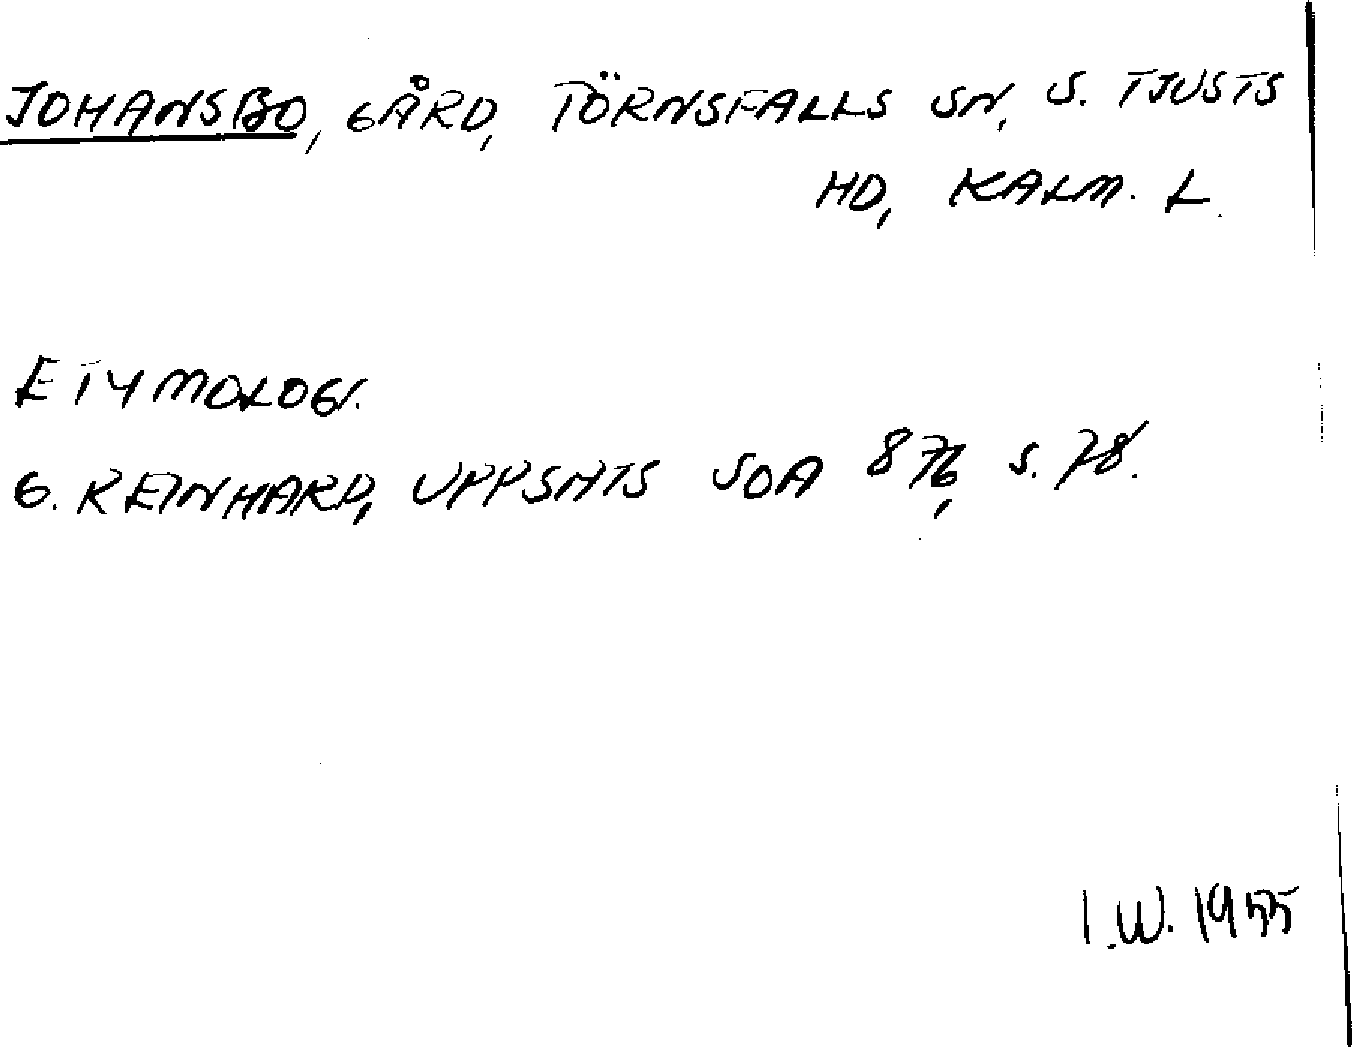 JOHANSBO, GÅRD, TÖRNSFALLS SN, S. TJUSTS
HD, KALM. L.
ETYMOLOGI.
G. REINHARD, UPPSATS SOA 876, S. 78.
I.W. 1955